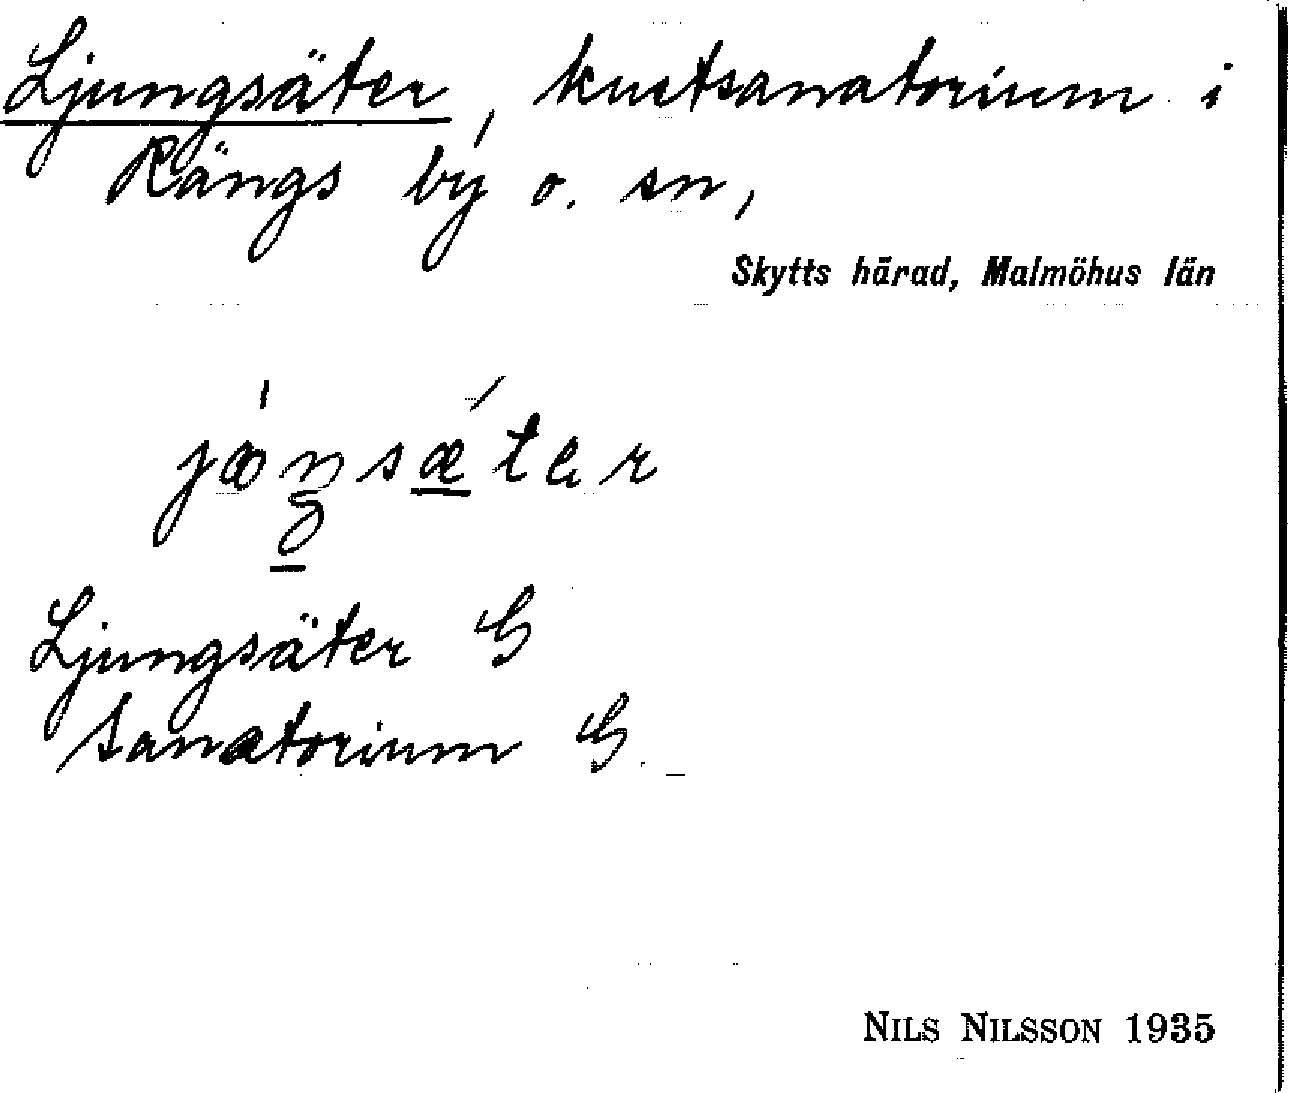 Ljungsäter, kustsanatorium i
Rängs by o. sn,
Skytts härad, Malmöhus län
Ljungsäter G
Sanatorium G.
NILS NILSSON 1935